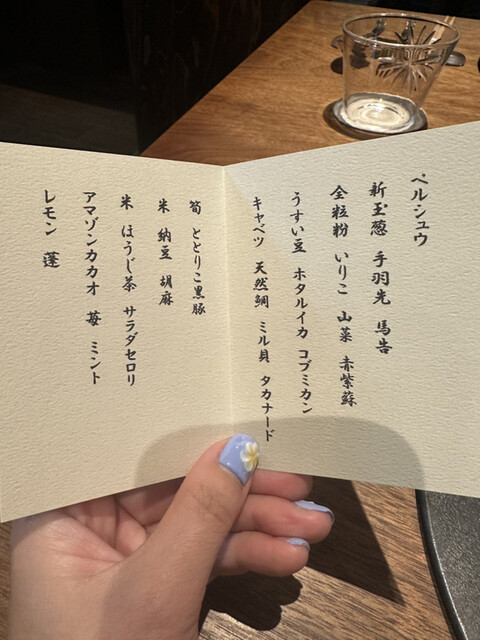 ペルシュウ
新玉葱 手羽先 馬告
全粒粉 いりこ 山菜 赤紫蘇
うすい豆 ホタルイカ コブミカン
キャベツ 天然鯛 ミル貝 タカナード
筍 ととりこ黒豚
米 納豆 胡麻
米 ほうじ茶 サラダセロリ
アマゾンカカオ 苺 ミント
レモン 蓬